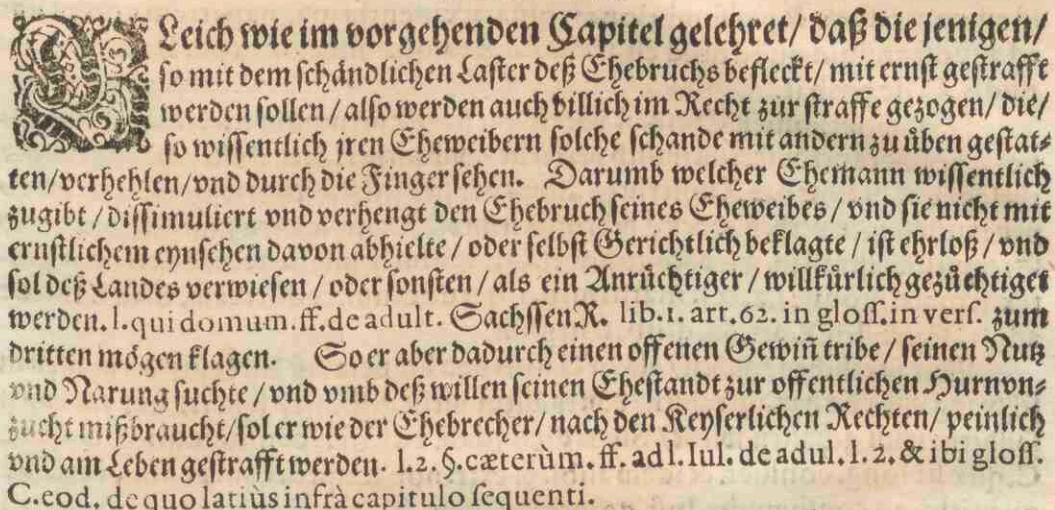 GLeich wie im vorgehenden Capitel gelehret/ daß die jenigen/
so mit dem schändlichen Laster deß Ehebruchs befleckt/ mit ernst gestrafft
werden sollen / also werden auch billich im Recht zur straffe gezogen/ die/
so wissentlich jren Eheweibern solche schande mit andern zu üben gestat-
ten/verhehlen/vnd durch die Finger sehen. Darumb welcher Ehemann wissentlich
zugibt / dissimuliert vnd verhengt den Ehebruch seines Eheweibes / vnd sie nicht mit
ernstlichem eynsehen davon abhielte / oder selbst Gerichtlich beklagte / ist ehrloß / vnd
sol deß Landes verwiesen / oder sonsten / als ein Anrüchtiger / willkürlich gezüchtiget
werden. l. qui domum. ff. de adult. Sachssen R. lib. 1. art. 62. in gloss. in vers. zum
dritten mögen klagen. So er aber dadurch einen offenen Gewiñ tribe / seinen Nutz
vnd Narung suchte / vnd vmb deß willen seinen Ehestandt zur offentlichen Hurnvn-
zucht mißbraucht/ sol er wie der Ehebrecher / nach den Keyserlichen Rechten/ peinlich
vnd am Leben gestrafft werden. l. 2. §. cæterùm. ff. ad l. Iul. de adul. l. 2. & ibi gloss.
C. eod. de quo latiùs infrà capitulo sequenti.